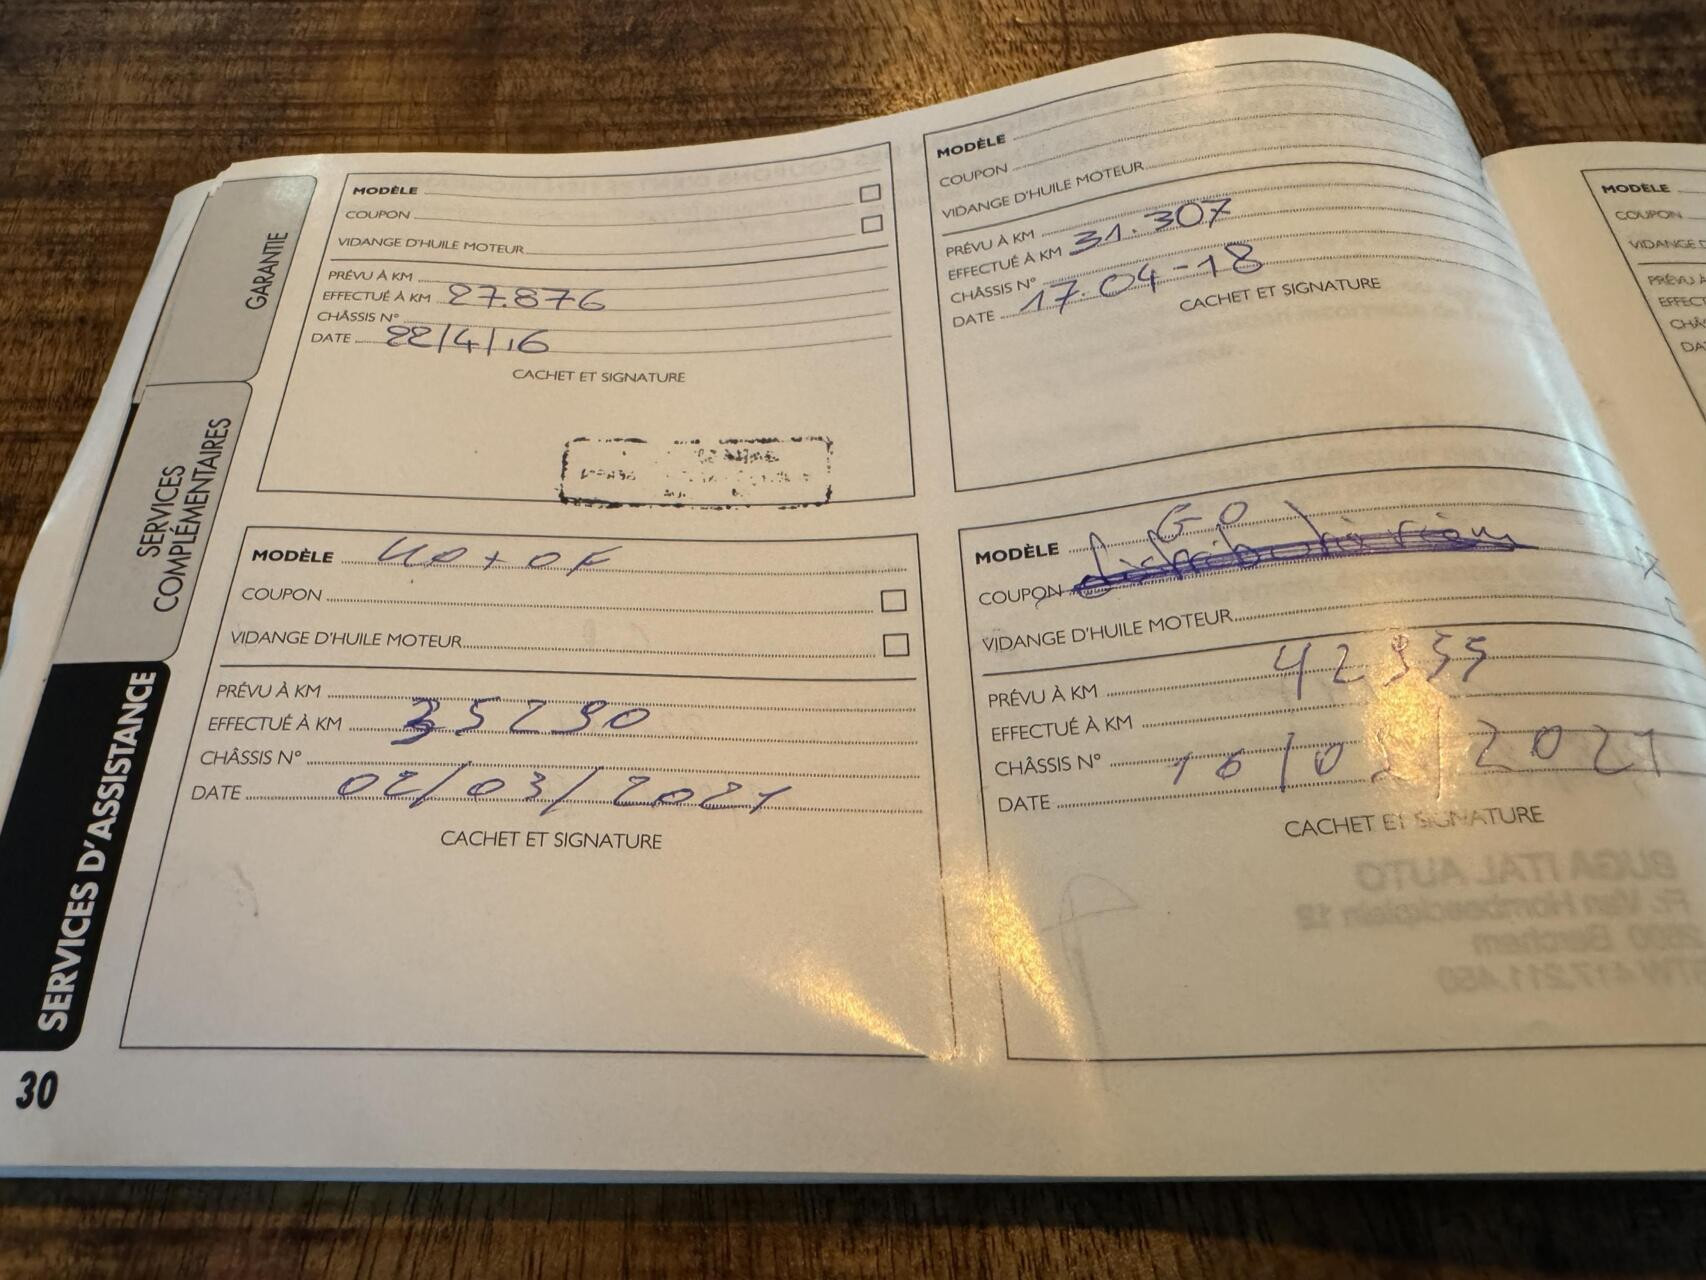 GARANTIE
SERVICES
COMPLÉMENTAIRES
SERVICES D'ASSISTANCE
MODÈLE
COUPON
VIDANGE D'HUILE MOTEUR
PRÉVU À KM
EFFECTUÉ À KM 27.876
CHÂSSIS N°
DATE 22/4/16
CACHET ET SIGNATURE
MODÈLE
COUPON
VIDANGE D'HUILE MOTEUR
PRÉVU À KM
EFFECTUÉ À KM 31.307
CHÂSSIS N°
DATE 17.04-18
CACHET ET SIGNATURE
MODÈLE
COUPON
VIDANGE D'HUILE MOTEUR
PRÉVU À KM
EFFECTUÉ À KM 35290
CHÂSSIS N°
DATE 02/03/2021
CACHET ET SIGNATURE
MODÈLE GO
COUPON
VIDANGE D'HUILE MOTEUR
PRÉVU À KM
EFFECTUÉ À KM
CHÂSSIS N°
DATE
CACHET ET SIGNATURE
BUGA ITAL AUTO
Fr. Van Hombeeckplein 12
Berchem
417.211.450
MODÈLE
COUPON
30